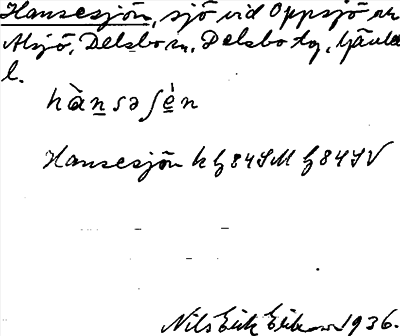 Hansesjön, sjö vid Oppsjö och
Alsjö, Delsbo sn, Delsbo tg, Gävle
l.
hànsəʃèn
Hansesjön h G 84 SM G 84 SV
Nils Erik Eriksson 1936.